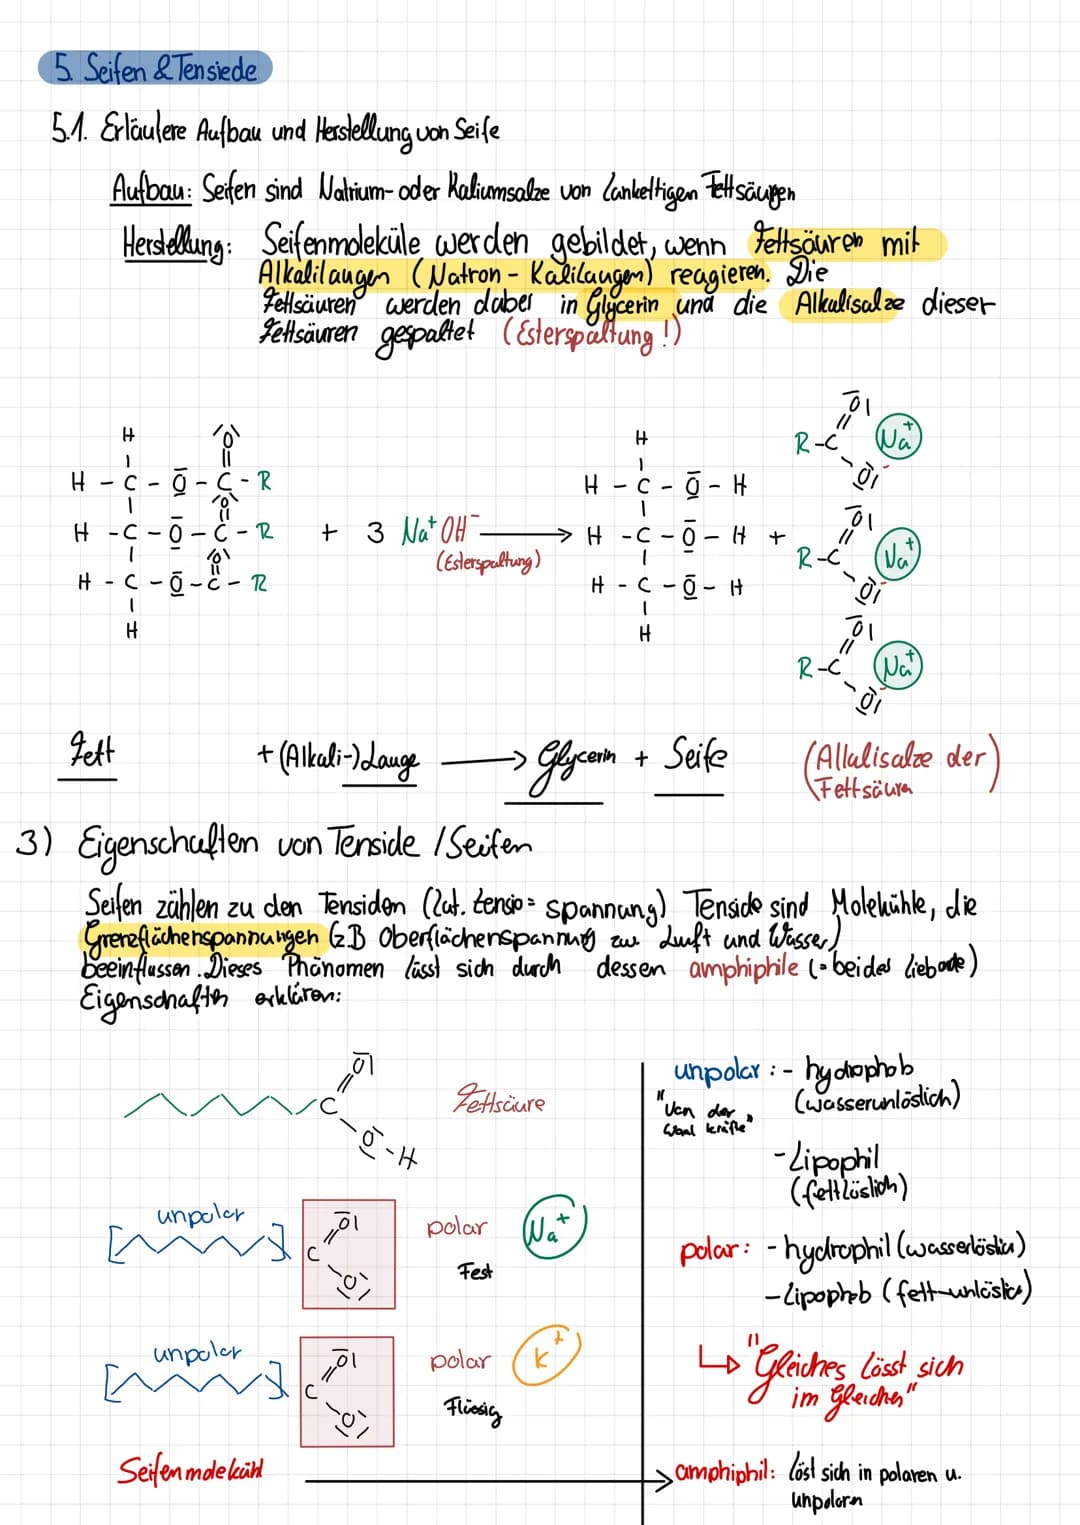 5. Seifen & Tensiede
5.1. Erläutere Aufbau und Herstellung von Seife
Aufbau: Seifen sind Natrium- oder Kaliumsalze von Lankettigen Fettsäuren
Herstellung: Seifenmoleküle werden gebildet, wenn Fettsäuren mit
Alkalilaugen (Natron- Kalilaugen) reagieren. Die
Fettsäuren werden dabei in Glycerin und die Alkalisalze dieser
Fettsäuren gespaltet (Esterspaltung!)
H
H - C - O - C - R
O
H - C - O - C - R
O
H - C - O - C - R
O
H
+ 3 Na+ OH-
(Esterspaltung)
H
H - C - O - H
H - C - O - H +
H - C - O - H
H
R-C O O Na+
R-C O O Na+
R-C O O Na+
Fett + (Alkali-) Lauge → Glycerin + Seife (Alkalisalze der
Fettsäure)
3) Eigenschaften von Tenside / Seifen
Seifen zählen zu den Tensiden (lat. tensio = spannung) Tenside sind Molekühle, die
Grenzflächenspannungen (z.B Oberflächenspannung zw. Luft und Wasser)
beeinflussen. Dieses Phänomen lässt sich durch dessen amphiphile (= beides liebende)
Eigenschaften erklären:
C O O-H
Fettsäure
unpolar
C O O
polar Na+
Fest
unpolar
C O O
polar K+
Flüssig
Seifenmolekühl
unpolar: - hydrophob
(wasserunlöslich)
"Van der
Waal kräfte"
- Lipophil
(fettlöslich)
polar: - hydrophil (wasserlöslich)
- Lipophob (fett-unlöslich)
↳ "Gleiches lösst sich
im Gleichen"
amphiphil: löst sich in polaren u.
unpolaren